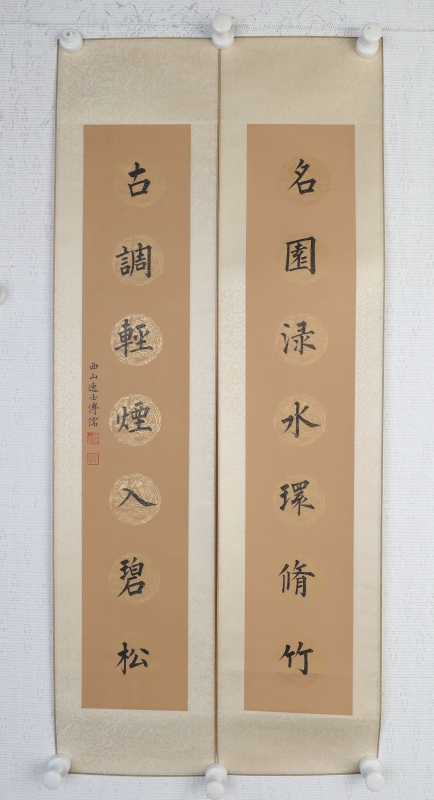 名園渌水環脩竹
古調輕煙入碧松
西山逸士溥儒